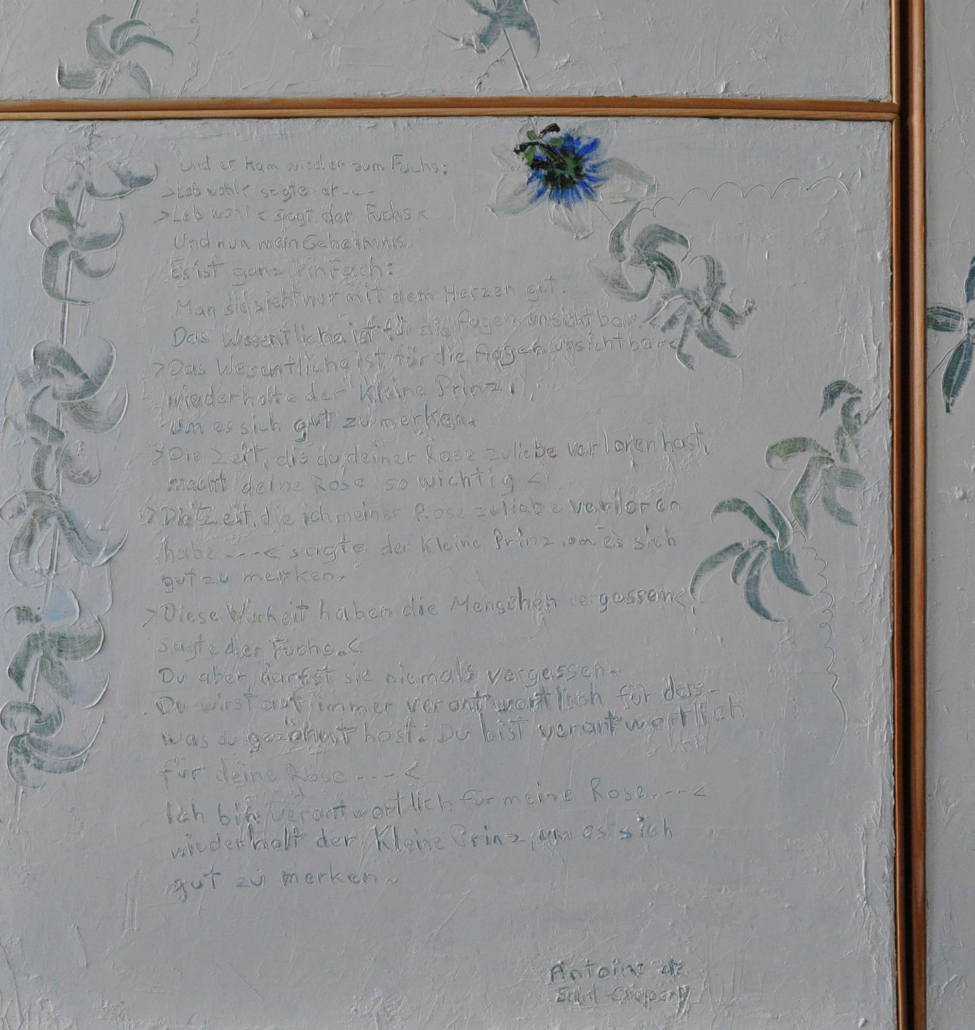 Und er kam wieder zum Fuchs:
>Leb wohl< sagte er---
>Leb wohl< sagt der Fuchs<
Und nun mein Geheimnis.
Es ist ganz einfach:
Man sieht nur mit dem Herzen gut.
Das Wesentliche ist für die Augen unsichtbar.
>Das Wesentliche ist für die Augen unsichtbar<
wiederholte der Kleine Prinz,
um es sich gut zu merken.
>Die Zeit, die du deiner Rose zuliebe verloren hast,
macht deine Rose so wichtig<
>Die Zeit, die ich meiner Rose zuliebe verloren
habe---< sagte der kleine Prinz, um es sich
gut zu merken.
>Diese Warheit haben die Menschen vergessen<,
sagte der Fuchs.<
Du aber darfst sie niemals vergessen.
Du wirst auf immer verantwortlich für das-
was du gezähmt hast. Du bist verantwortlich
für deine Rose---<
Ich bin verantwortlich für meine Rose.---<
wiederholt der Kleine Prinz, um es sich
gut zu merken~
Antoine de
Saint Exupéry